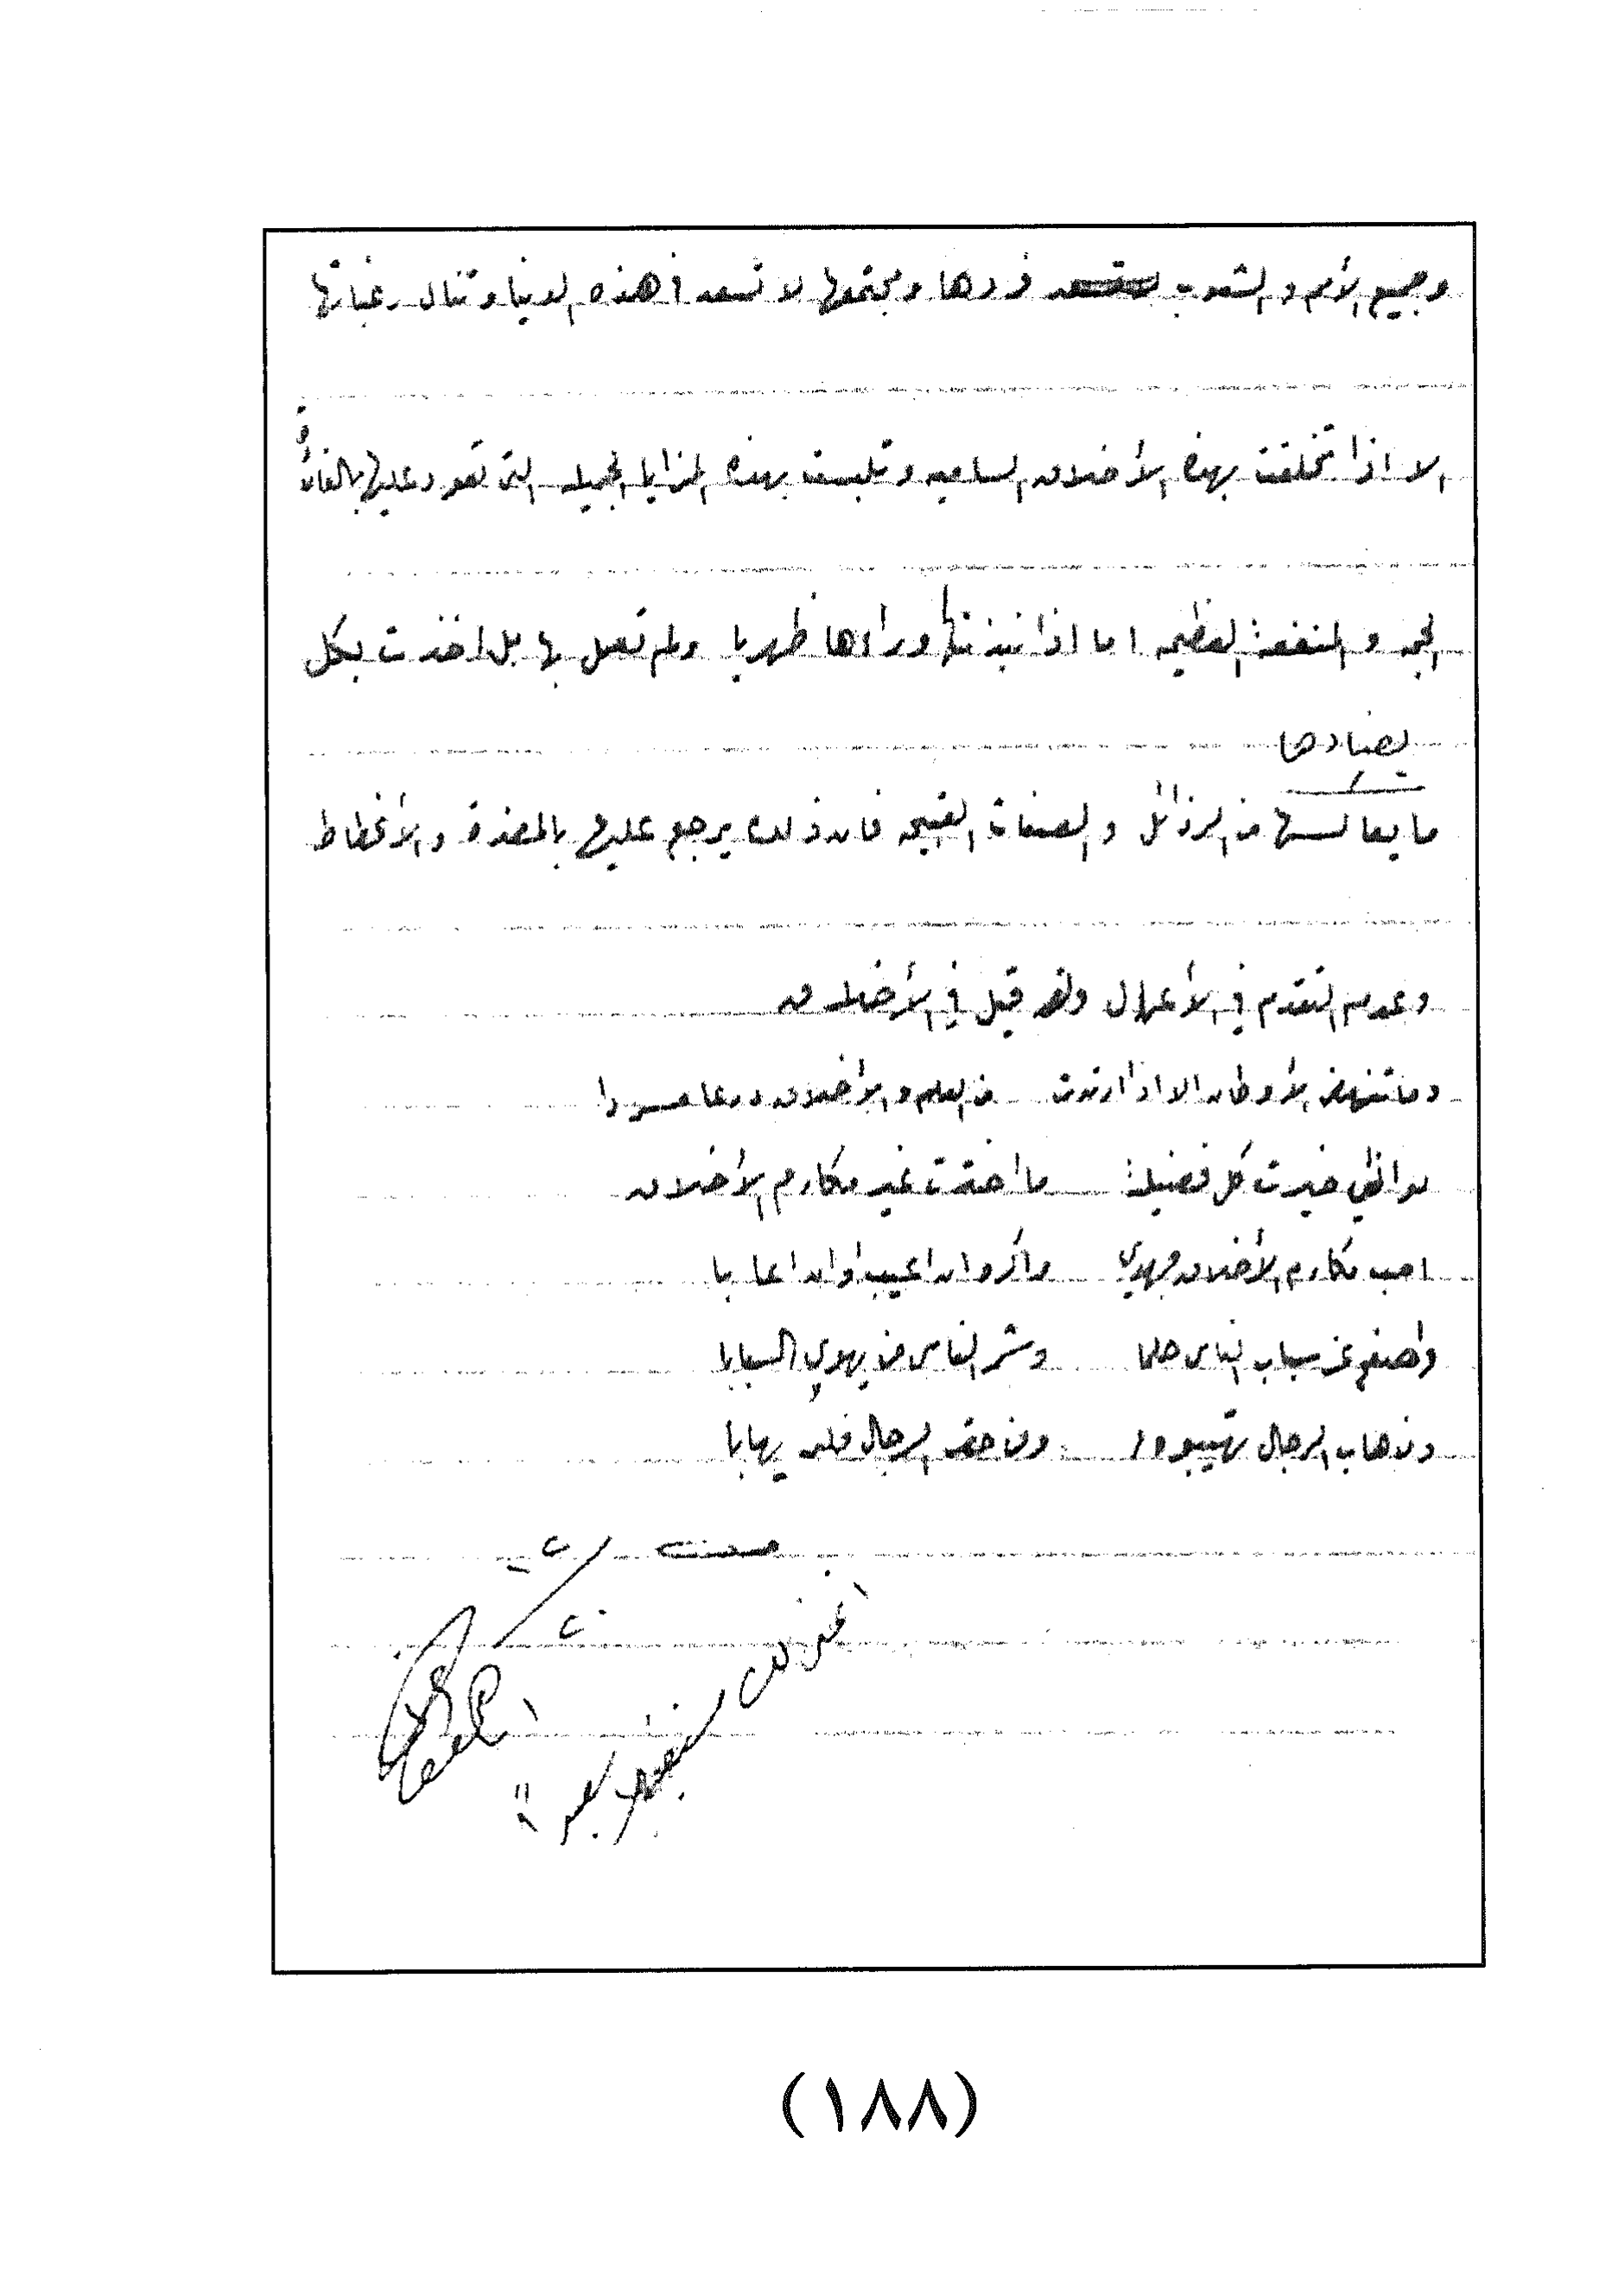 وجميع الأمم والشعوب فردها ومجتمعها لا تسعد في هذه الدنيا وتنال رغباتها
الا اذا تخلقت بهذه الأخلاق الساميه وتلبست بهذه المزايا الجميله التى تعود عليها بالفائدة
الجمه والمنفعة العظيمه اما اذا نبذتها وراءها ظهريا ولم تعمل بها بل اخذت بكل
يضادها
ما يعاكسها من الرذائل والصفات القبيحه فان ذلك يرجع عليها بالمضرة والأنحطاط
وعدم التقدم في الأعمال وقد قيل في الأخلاق
وما تنهض الأوطان الا اذا ارتدت من العلم والأخلاق درعا مسردا
لو انني خيرت كل فضيلة ما اخترت غير مكارم الأخلاق
احب مكارم الأخلاق جهدي واكره ان اعيب وان اعابا
واصفح عن سباب الناس حلما وشر الناس من يهوي السبابا
ومن هاب الرجال تهيبوه ومن حقر الرجال فلن يهابا
تمت
(١٨٨)